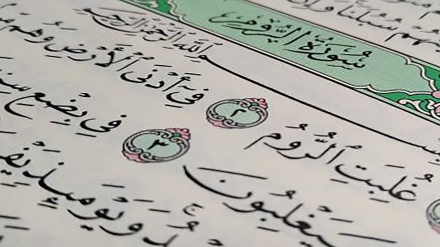 سُورَةُ الرُّومِ
ٱللَّهِ ٱلرَّحْمَٰنِ ٱلرَّحِيمِ
غُلِبَتِ ٱلرُّومُ ٢ فِىٓ أَدْنَى ٱلْأَرْضِ وَهُم
سَيَغْلِبُونَ ٣ فِى بِضْعِ
وَيَوْمَئِذٍ